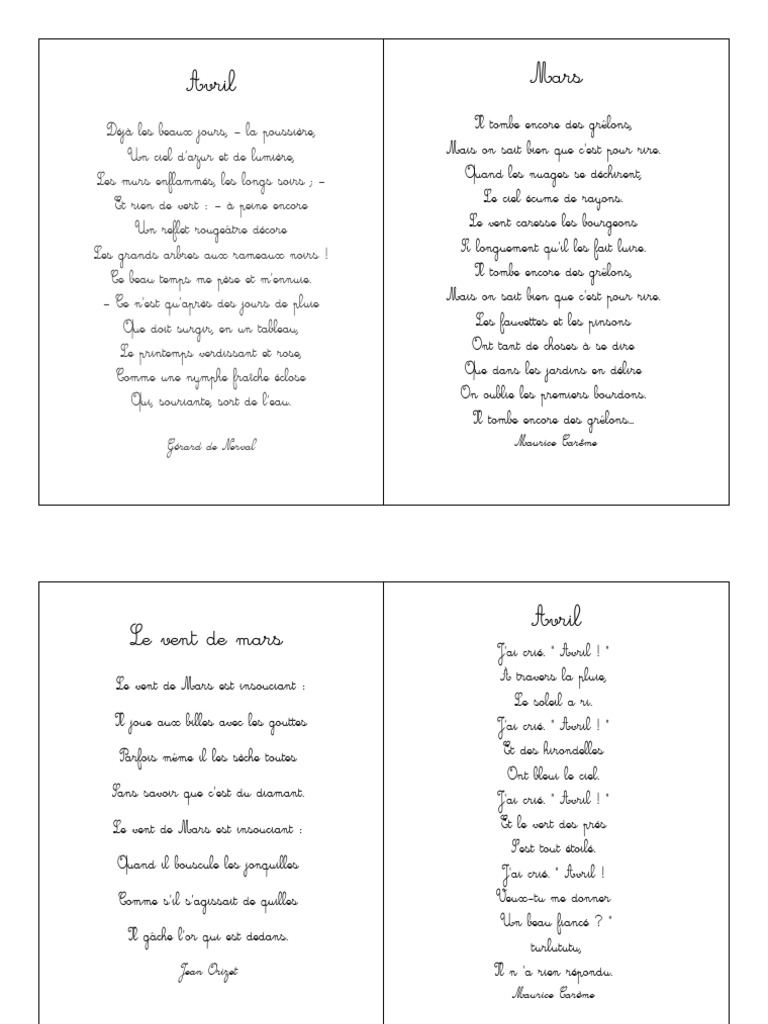 Avril
Déjà les beaux jours, – la poussière,
Un ciel d'azur et de lumière,
Les murs enflammés, les longs soirs ; –
Et rien de vert : – à peine encore
Un reflet rougeâtre décore
Les grands arbres aux rameaux noirs !
Ce beau temps me pèse et m'ennuie.
– Ce n'est qu'après des jours de pluie
Que doit surgir, en un tableau,
Le printemps verdissant et rose,
Comme une nymphe fraîche éclose
Qui, souriante, sort de l'eau.
Gérard de Nerval
Mars
Il tombe encore des grêlons,
Mais on sait bien que c'est pour rire.
Quand les nuages se déchirent,
Le ciel écume de rayons.
Le vent caresse les bourgeons
Si longuement qu'il les fait luire.
Il tombe encore des grêlons,
Mais on sait bien que c'est pour rire.
Les fauvettes et les pinsons
Ont tant de choses à se dire
Que dans les jardins en délire
On oublie les premiers bourdons.
Il tombe encore des grêlons...
Maurice Carême
Le vent de mars
Le vent de Mars est insouciant :
Il joue aux billes avec les gouttes
Parfois même il les sèche toutes
Sans savoir que c'est du diamant.
Le vent de Mars est insouciant :
Quand il bouscule les jonquilles
Comme s'il s'agissait de quilles
Il gâche l'or qui est dedans.
Jean Orizet
Avril
J'ai crié. " Avril ! "
A travers la pluie,
Le soleil a ri.
J'ai crié. " Avril ! "
Et des hirondelles
Ont bleui le ciel.
J'ai crié. " Avril ! "
Et le vert des prés
S'est tout étoilé.
J'ai crié. " Avril !
Veux-tu me donner
Un beau fiancé ? "
turlututu,
Il n 'a rien répondu.
Maurice Carême